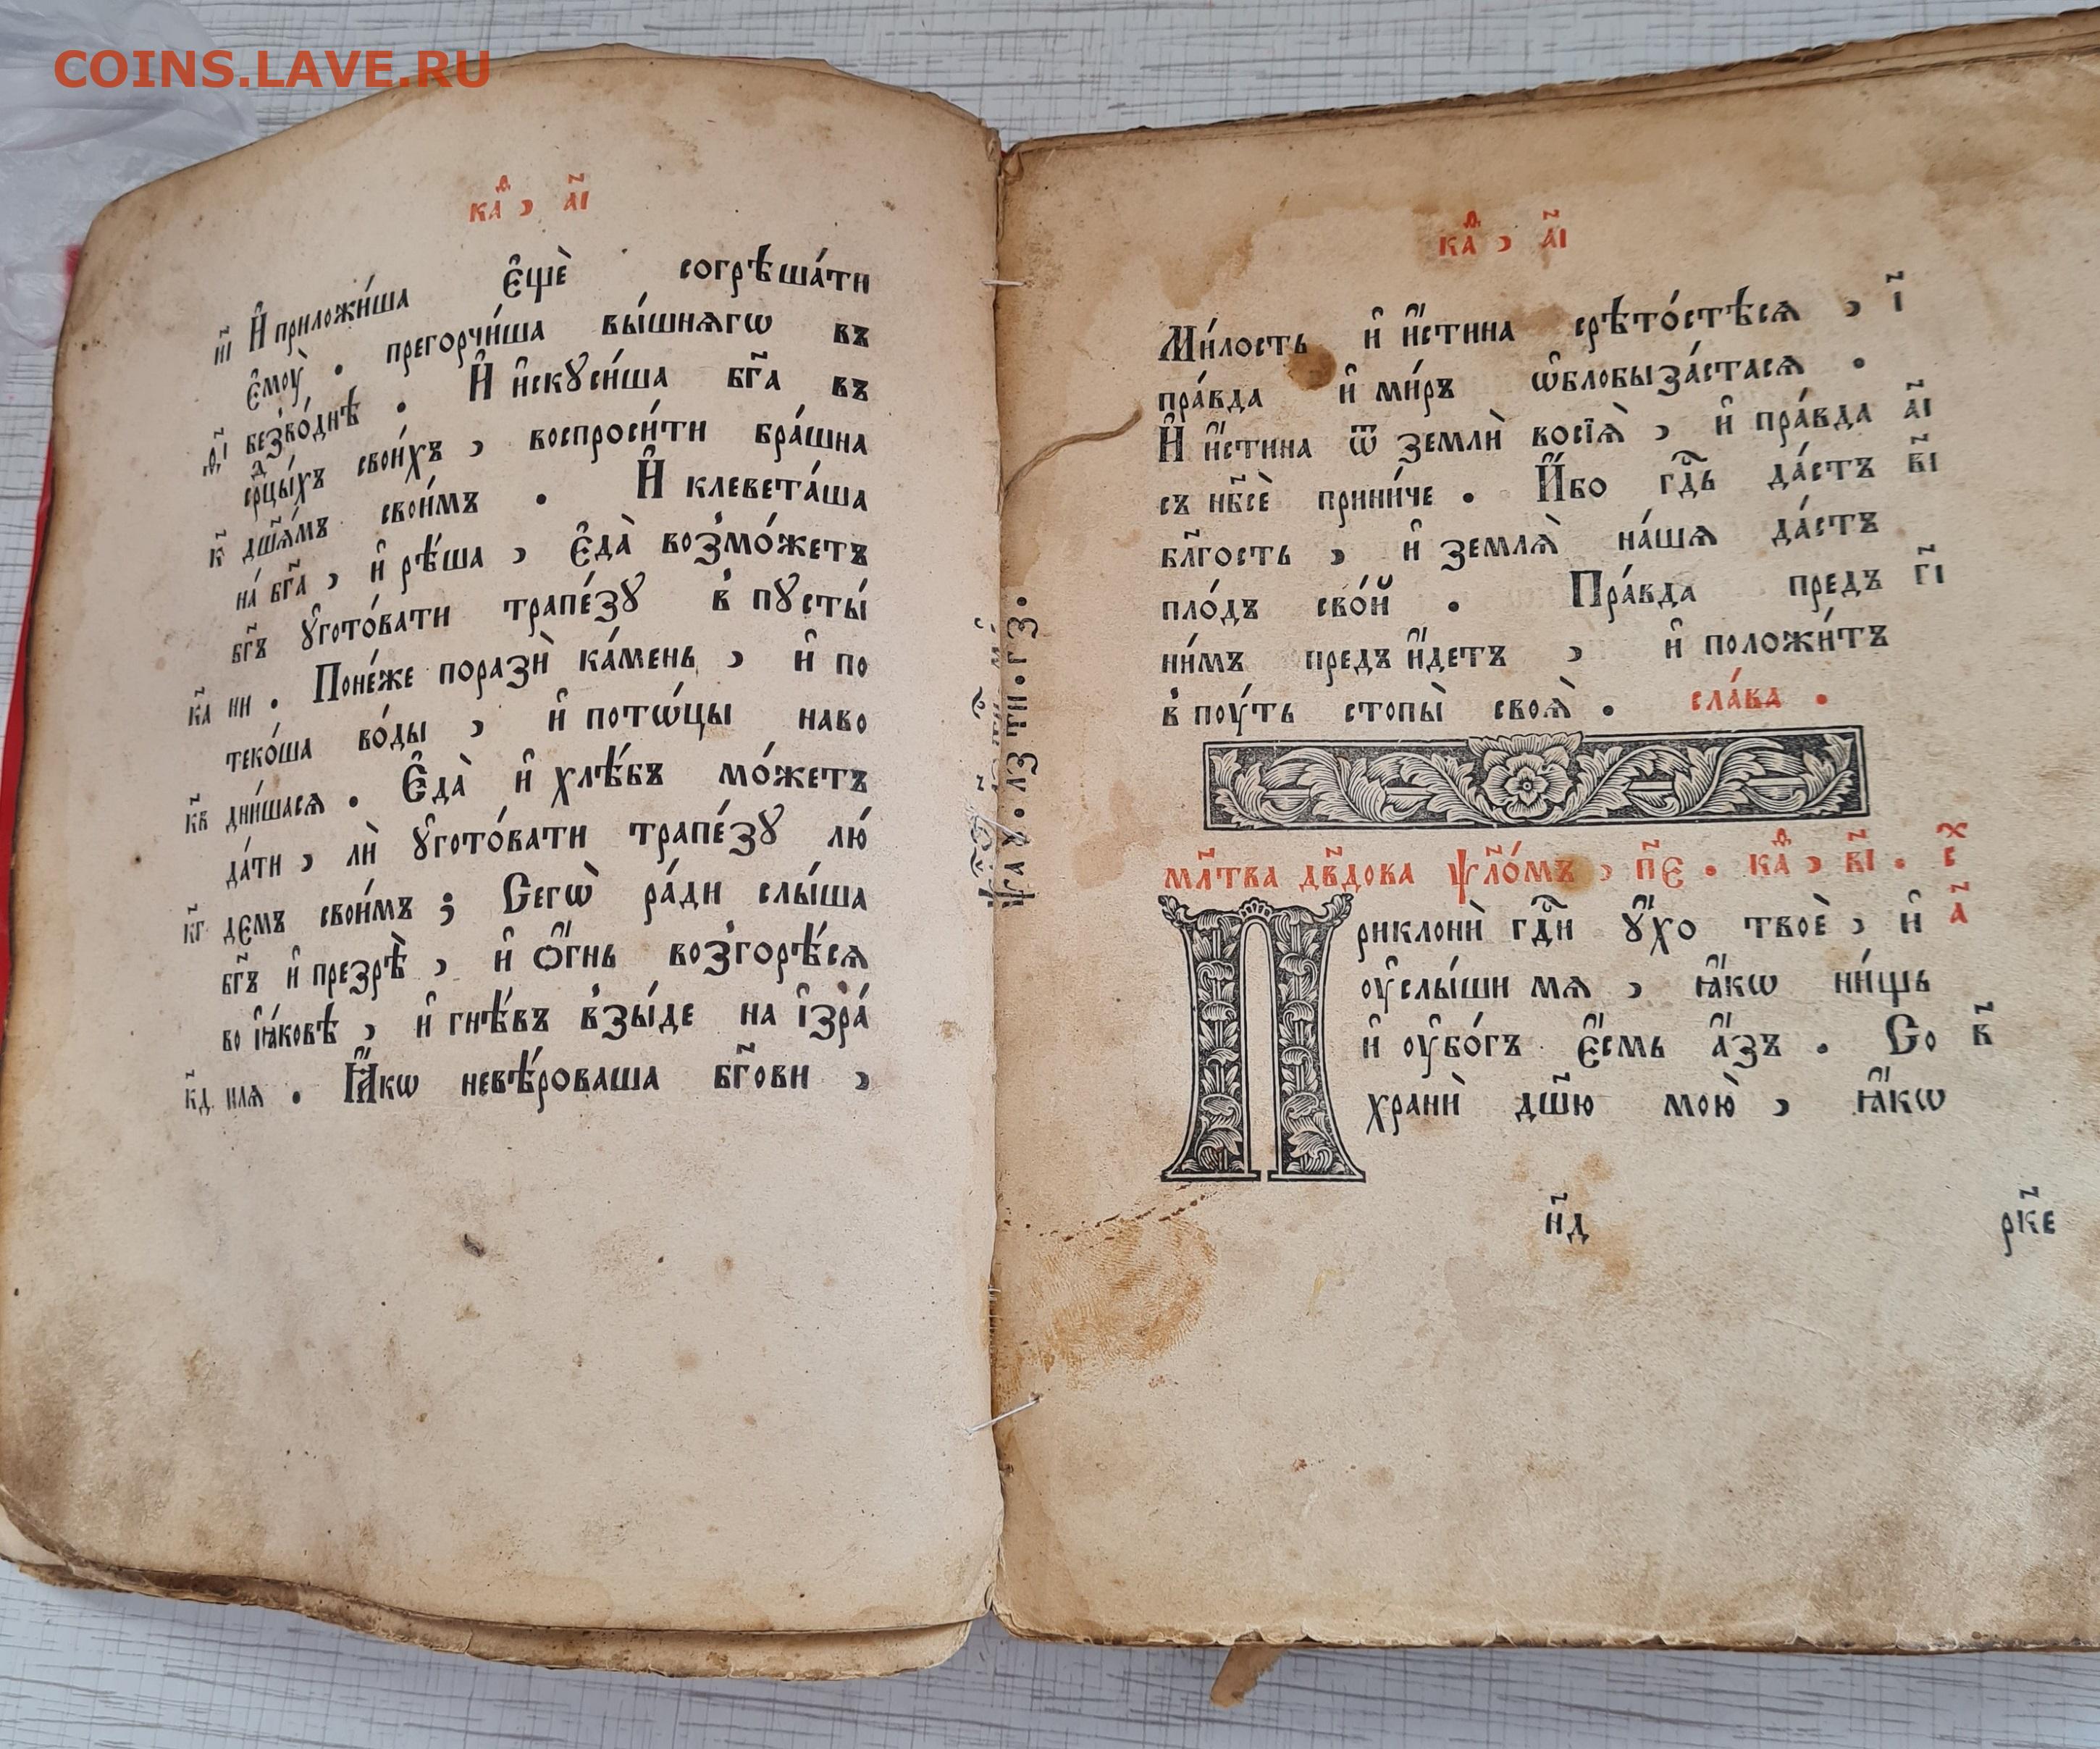 COINS.LAVE.RU
каⷴ , а҃і
н҃і И҆ приложи́ша є҆щѐ согрѣша́ти
є҆моу̀ . прегорчи́ша вы́шнѧгѡ въ
ѳ҃і безво́днѣ . И҆ и҆скꙋси́ша бг҃а въ
срⷣцы́хъ свои́хъ , воспроси́ти бра́шна
к҃ дш҃а́мъ свои́мъ . И҆ клевета́ша
на́ бг҃а , и҆ рѣ́ша , є҆да̀ возмо́жетъ
бг҃ъ ᲂу҆гото́вати трапе́зꙋ в̾ пꙋсты́
к҃а ни . Поне́же поразѝ ка́мень , и҆ по
теко́ша во́ды , и҆ пото́цы наво
к҃в дни́шасѧ . Є҆да̀ и҆ хлѣ́бъ мо́жетъ
да́ти , лѝ ᲂу҆гото́вати трапе́зꙋ лю́
к҃г демъ свои́мъ ; Сегѡ̀ ра́ди слы́ша
бг҃ъ и҆ презрѣ̀ , и҆ ѻ҆́гнь возгорѣ́сѧ
во і҆а́ковѣ , и҆ гнѣ́въ в̾зы́де на і҆зра́
к҃д илѧ . Ꙗ҆́кѡ невѣ́роваша бг҃ови ,
каⷴ , а҃і
Ми́лость и҆ и҆́стина срѣто́стѣсѧ , і҃
пра́вда и҆ ми́ръ ѡ҆блобыза́стасѧ .
И҆ и҆́стина ѿ землѝ восїѧ̀ , и҆ пра́вда а҃і
съ нб҃сѐ прини́че . И҆́бо гдⷭ҇ь да́стъ в҃і
бл҃гость , и҆ землѧ̀ на́шѧ да́стъ
пло́дъ сво́й . Пра́вда предъ г҃і
ни́мъ предъ и҆́детъ , и҆ положи́тъ
в̾ поу́ть стопы̀ своѧ̀ . сла́ва .
мл҃тва дв҃дова ѱл҃о́мъ , п҃є . каⷴ , в҃і . сⷯ
Приклонѝ гдⷭ҇и ᲂу҆́хо твоѐ , и҆ а҃
ᲂу҆слы́ши мѧ , ꙗ҆́кѡ ни́щь
и҆ ᲂу҆бо́гъ є҆́смь а҆́зъ . Со в҃
хранѝ дш҃ю мою̀ , ꙗ҆́кѡ
н҃д
рк҃є